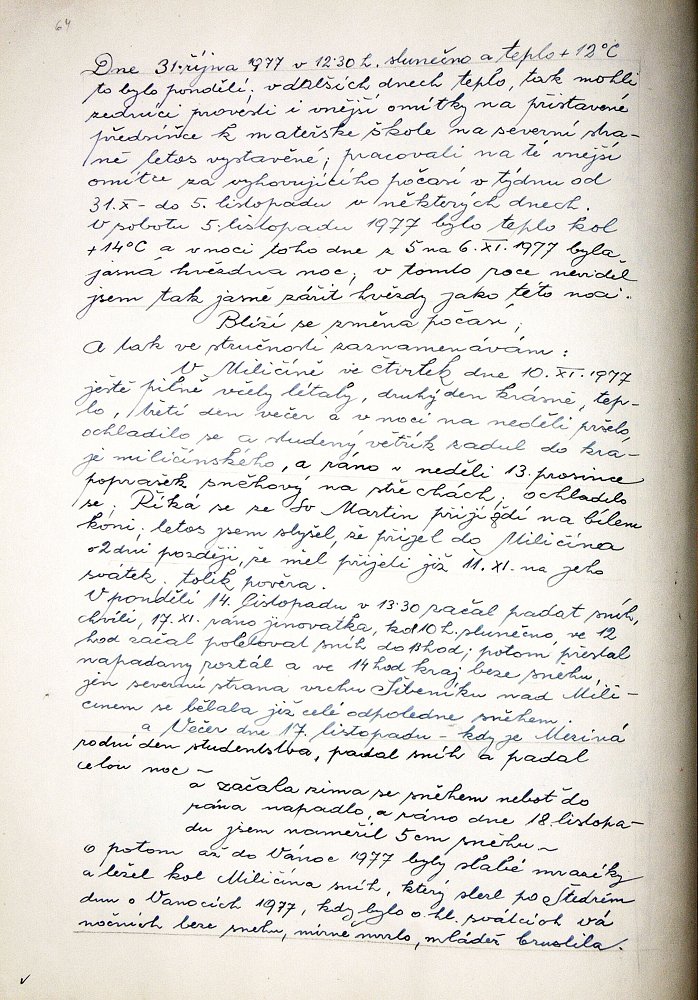 64
Dne 31. října 1977 v 12:30 h. slunečno a teplo +12°C
to bylo pondělí; v dalších dnech teplo, tak mohli
zedníci provésti i vnější omítky na přistavené
předsíňce k mateřske škole na severní stra-
ně letos vystavěné; pracovali na té vnější
omítce za vyhovujícího počasí v týdnu od
31.X - do 5. listopadu v některých dnech.
V sobotu 5. listopadu 1977 bylo teplo kol
+14°C a v noci toho dne z 5 na 6. XI. 1977 byla
jasná hvězdna noc; v tomto roce neviděl
jsem tak jasně zářit hvězdy jako této noci.
Blíží se změna počasí;
A tak ve stručnosti zaznamenávám:
V Miličíně ve čtvrtek dne 10. XI. 1977
ještě pilně včely létaly, druhý den krásně, tep-
lo, třetí den večer a v noci na neděli pršelo,
ochladilo se a studený větřík zadul do kra-
je miličínského, a ráno v neděli 13. prosince
poprašek sněhový na střechách; ochladilo
se; Říká se se Sv Martin přijíždí na bílém
koni; letos jsem slyšel, že přijel do Miličína
o 2 dni později, že měl přijeti již 11. XI. na jeho
svátek. tolik pověra.
V pondělí 14. listopadu v 13:30 začal padat sníh,
chvíli, 17. XI. ráno jinovatka, kol 10 h. slunečno, ve 12
hod začal poletovat sníh do 13 hod; potom přestal
napadany roztál a ve 14 hod kraj beze sněhu,
jen severní strana vrchu Šibeníku nad Mili-
činem se bělala již celé odpoledne sněhem.
a Večer dne 17. listopadu - kdy je Meziná
rodní den studentstva, padal sníh a padal
celou noc -
a začala zima se sněhem neboť do
rána napadlo, a ráno dne 18. listopa-
du jsem naměřil 5 cm sněhu -
a potom až do Vánoc 1977 byly slabé mrazíky
a ležel kol Miličína sníh, který slezl po Štedrém
dnu o Vanocích 1977, kdy bylo o hl. svátcích vá
nočních beze snehu, mírně mrzlo, mládež bruslila.